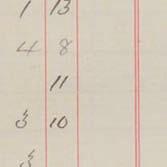 1 13
4 8
11
3 10
3